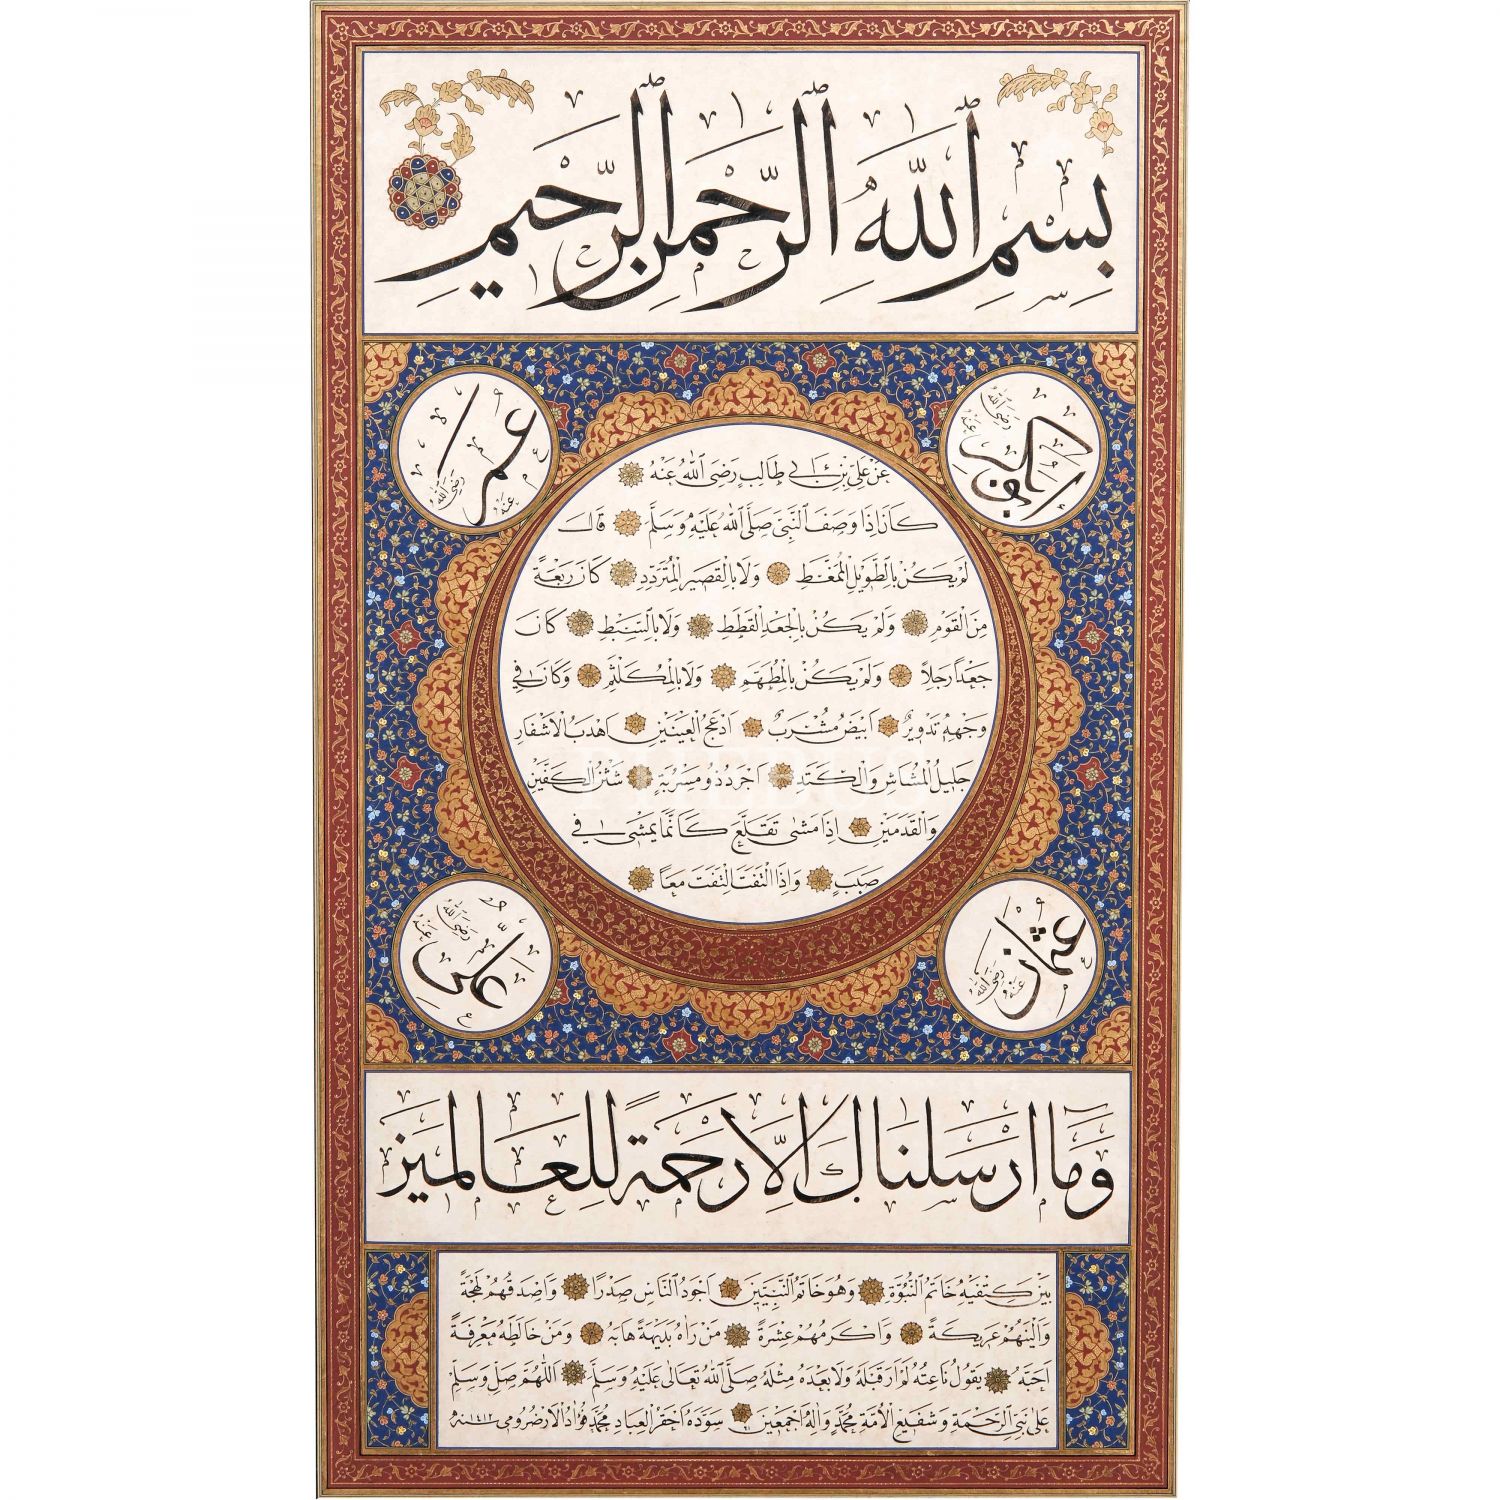 بِسْمِ ٱللّٰهِ ٱلرَّحْمٰنِ ٱلرَّحِيمِ
ابوبكر رضى الله عنه
عمر رضى الله عنه
عَنْ عَلِيِّ بْنِ اَبِي طَالِبٍ رَضِيَ اللهُ عَنْهُ
كَانَ اِذَا وَصَفَ النَّبِيَّ صَلَّى اللهُ عَلَيْهِ وَسَلَّمَ قَالَ
لَمْ يَكُنْ بِالطَّوِيلِ الْمُمَغَّطِ وَلَا بِالْقَصِيرِ الْمُتَرَدِّدِ كَانَ رَبْعَةً
مِنَ الْقَوْمِ وَلَمْ يَكُنْ بِالْجَعْدِ الْقَطَطِ وَلَا بِالسَّبِطِ كَانَ
جَعْداً رَجِلاً وَلَمْ يَكُنْ بِالْمُطَهَّمِ وَلَا بِالْمُكَلْثَمِ وَكَانَ فِي
وَجْهِهِ تَدْوِيرٌ اَبْيَضُ مُشْرَبٌ اَدْعَجُ الْعَيْنَيْنِ اَهْدَبُ الْاَشْفَارِ
جَلِيلُ الْمُشَاشِ وَالْكَتَدِ اَجْرَدُ ذُو مَسْرُبَةٍ شَثْنُ الْكَفَّيْنِ
وَالْقَدَمَيْنِ اِذَا مَشٰى تَقَلَّعَ كَاَنَّمَا يَمْشِي فِي
صَبَبٍ وَاِذَا الْتَفَتَ الْتَفَتَ مَعاً
عثمان رضى الله عنه
على رضى الله عنه
وَمَا اَرْسَلْنَاكَ اِلَّا رَحْمَةً لِلْعَالَمِينَ
بَيْنَ كَتِفَيْهِ خَاتَمُ النُّبُوَّةِ وَهُوَ خَاتَمُ النَّبِيِّينَ اَجْوَدُ النَّاسِ صَدْرًا وَاَصْدَقُهُمْ لَهْجَةً
وَاَلْيَنُهُمْ عَرِيكَةً وَاَكْرَمُهُمْ عِشْرَةً مَنْ رَاٰهُ بَدِيهَةً هَابَهُ وَمَنْ خَالَطَهُ مَعْرِفَةً
اَحَبَّهُ يَقُولُ نَاعِتُهُ لَمْ اَرَ قَبْلَهُ وَلَا بَعْدَهُ مِثْلَهُ صَلَّى اللهُ تَعَالٰى عَلَيْهِ وَسَلَّمَ اَللّٰهُمَّ صَلِّ وَسَلِّمْ
عَلٰى نَبِيِّ الرَّحْمَةِ وَشَفِيعِ الْاُمَّةِ مُحَمَّدٍ وَاٰلِهِ اَجْمَعِينَ سَوَّدَهُ اَحْقَرُ الْعِبَادِ مُحَمَّدْ فُؤَادُ الْاَرْضُرُومِي سنه ١٤١٢